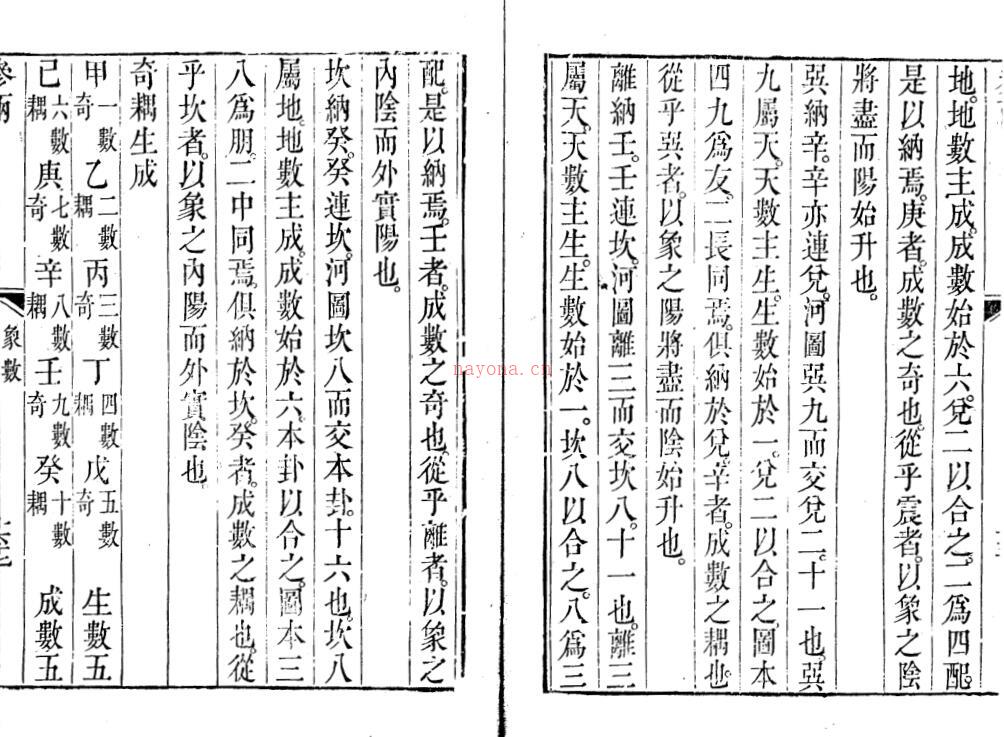 地。地數主成。成數始於六。兌二以合之。二爲四配。
是以納焉。庚者。成數之奇也。從乎震者。以象之陰
將盡而陽始升也。
巽納辛。辛亦連兌。河圖巽九而交兌二。十一也。巽
九屬天。天數主生。生數始於一。兌二以合之。圖本
四九爲友。二長同焉。俱納於兌。辛者。成數之耦也。
從乎巽者。以象之陽將盡而陰始升也。
離納壬。壬連坎。河圖離三而交坎八。十一也。離三
屬天。天數主生。生數始於一。坎八以合之。八爲三
配。是以納焉。壬者。成數之奇也。從乎離者。以象之
內陰而外實陽也。
坎納癸。癸連坎。河圖坎八而交本卦。十六也。坎八
屬地。地數主成。成數始於六。本卦以合之。圖本三
八爲朋。二中同焉。俱納於坎。癸者。成數之耦也。從
乎坎者。以象之內陽而外實陰也。
奇耦生成
甲一數奇 乙二數耦 丙三數奇 丁四數耦 戊五數奇 生數五
己六數耦 庚七數奇 辛八數耦 壬九數奇 癸十數耦 成數五
象數
nayona.cn